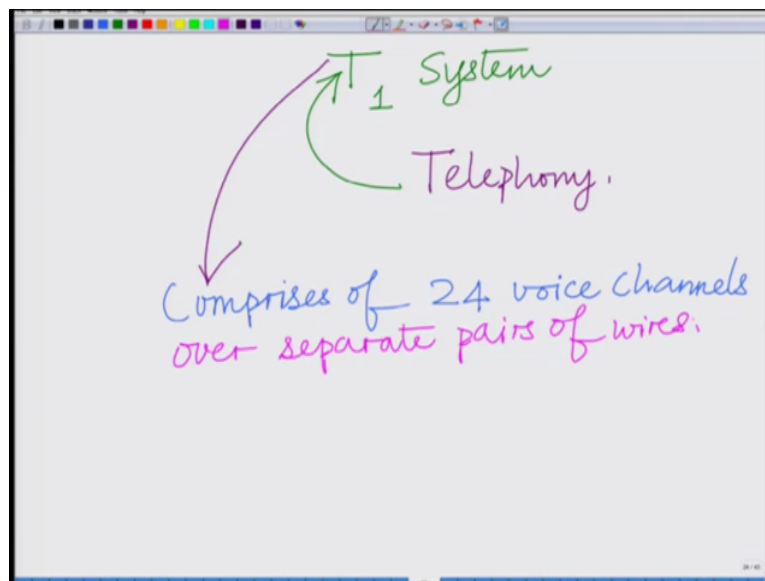 T1 System
Telephony.
Comprises of 24 voice channels
over separate pairs of wires.